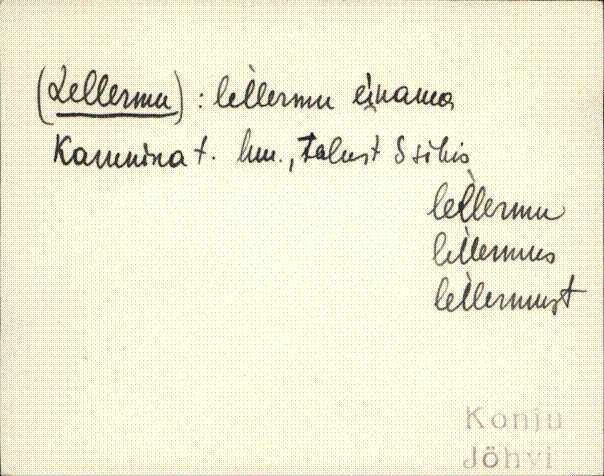 (Lellermu) : lèllermu e̬i̬nama
Kamnina t. hm., talust S sihis
lèllermu
lèllermus
lèllermust
Konju
Jõhvi